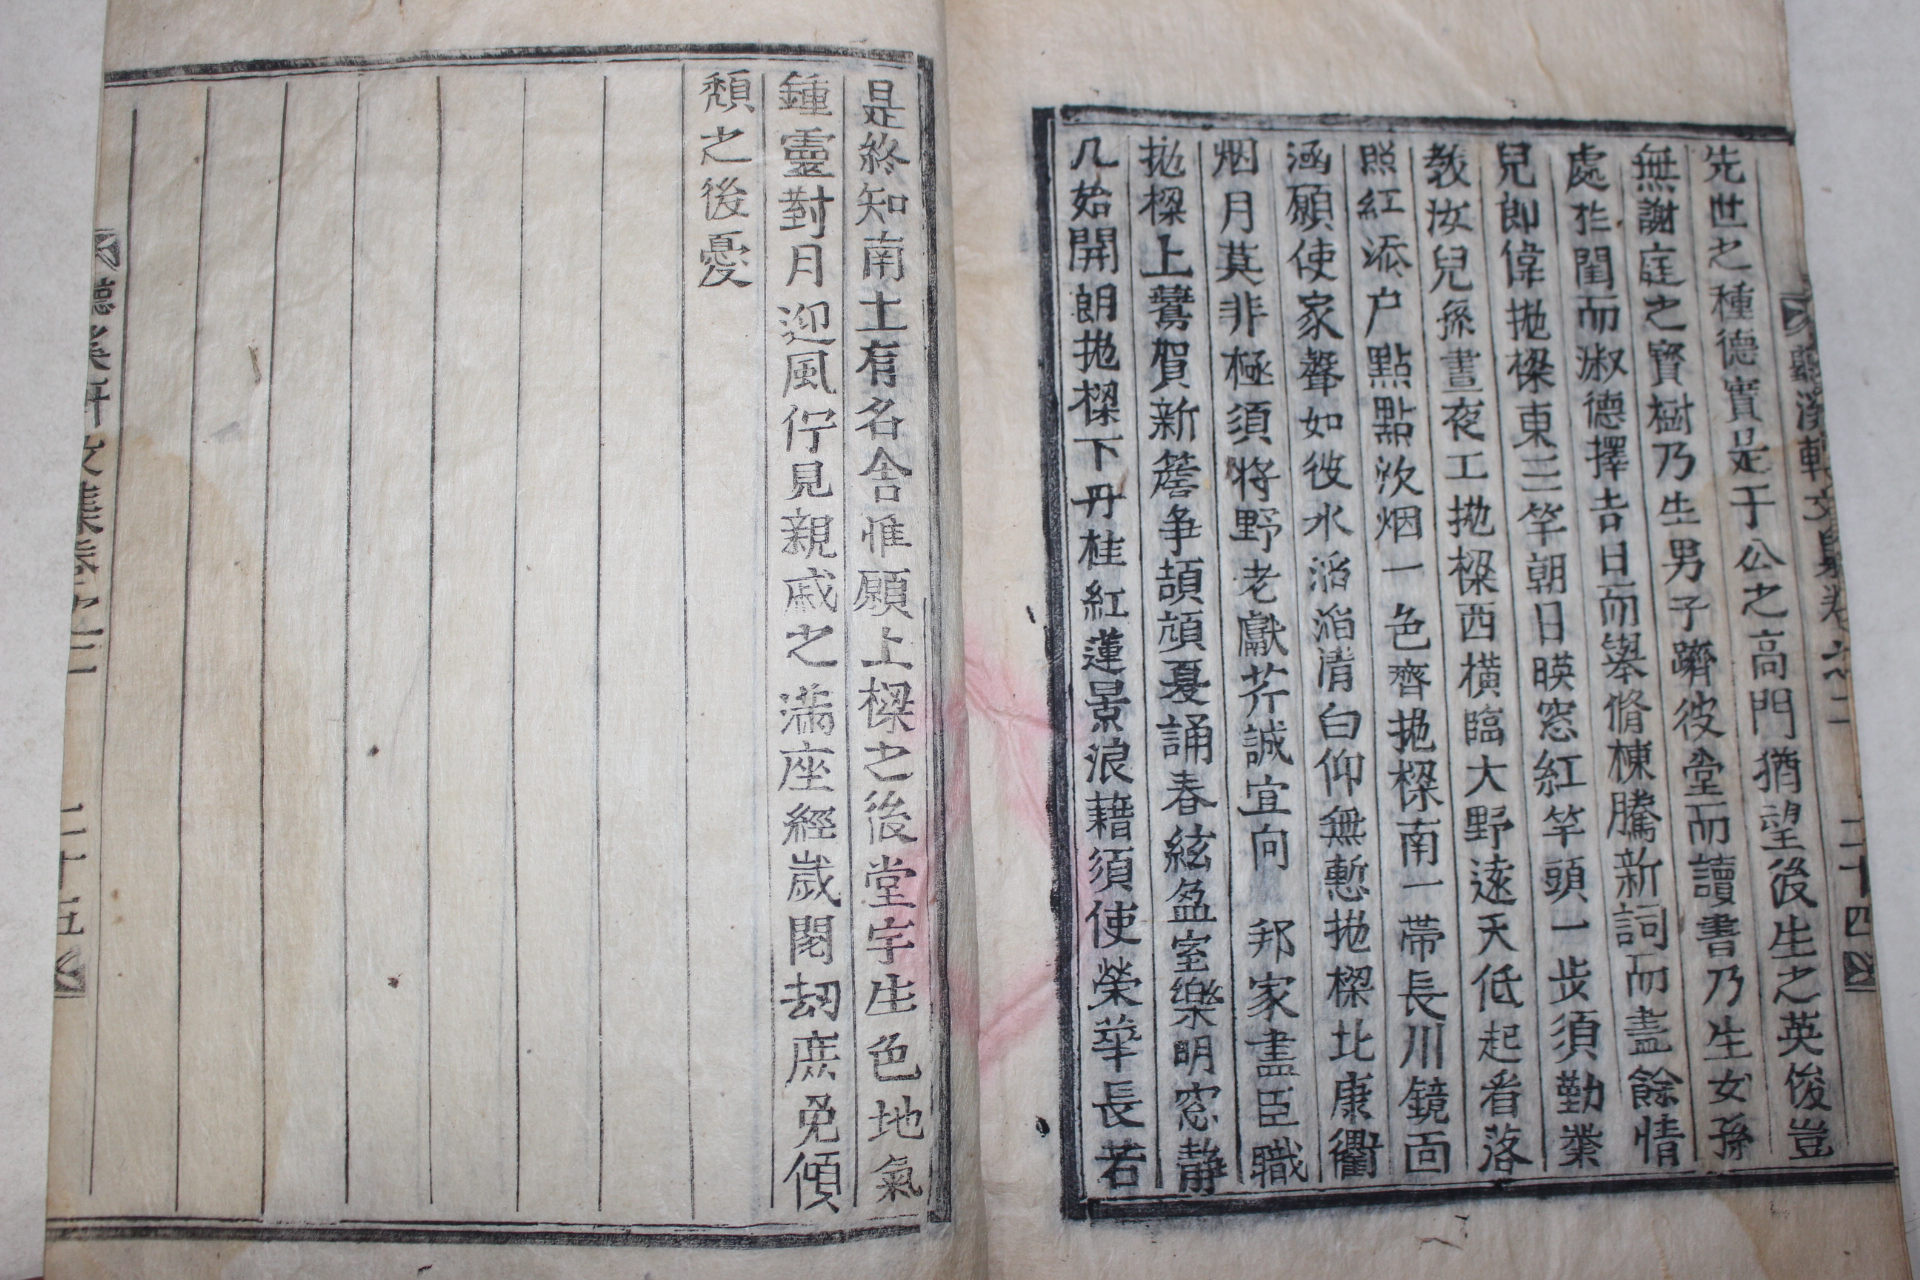 先世之種德實是于公之高門猶望後生之英俊豈
無謝庭之寶樹乃生男子躋彼堂而讀書乃生女孫
處於閨而淑德擇吉日而擧脩棟騰新詞而盡餘情
兒郞偉拋樑東三竿朝日暎窓紅竿頭一步須勤業
敎汝兒孫晝夜工拋樑西橫臨大野遠天低起看落
照紅添戶點點炊烟一色齊拋樑南一帶長川鏡面
涵願使家聲如彼水滔滔淸白仰無慙拋樑北康衢
烟月莫非極須將野老獻芹誠宜向 邦家盡臣職
拋樑上鷰賀新簷爭頡頏憂誦春絃盈室樂明窓靜
几始開朗拋樑下丹桂紅蓮景浪藉須使榮華長若
漢軒文集卷之二 二十四
是終知南土有名舍惟願上樑之後堂宇生色地氣
鍾靈對月迎風佇見親戚之滿座經歲閱劫庶免傾
頹之後憂
文集卷之二 二十五